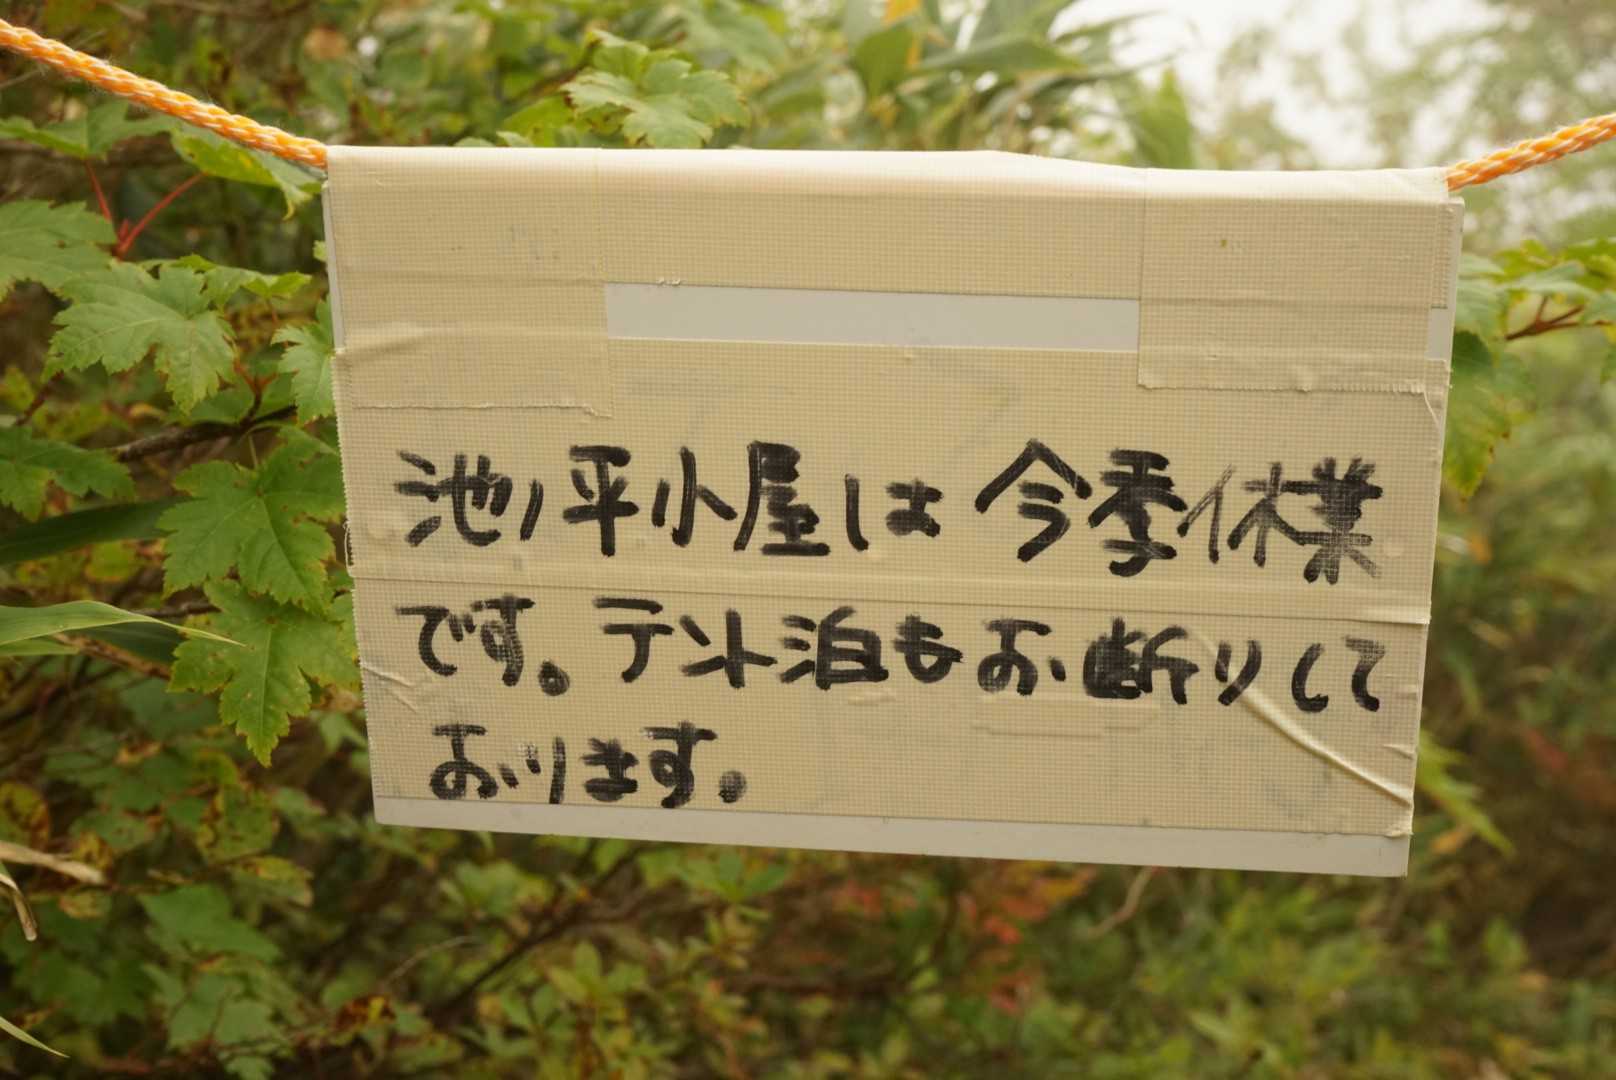 池ノ平小屋は今季休業
です。テント泊もお断りして
おります。